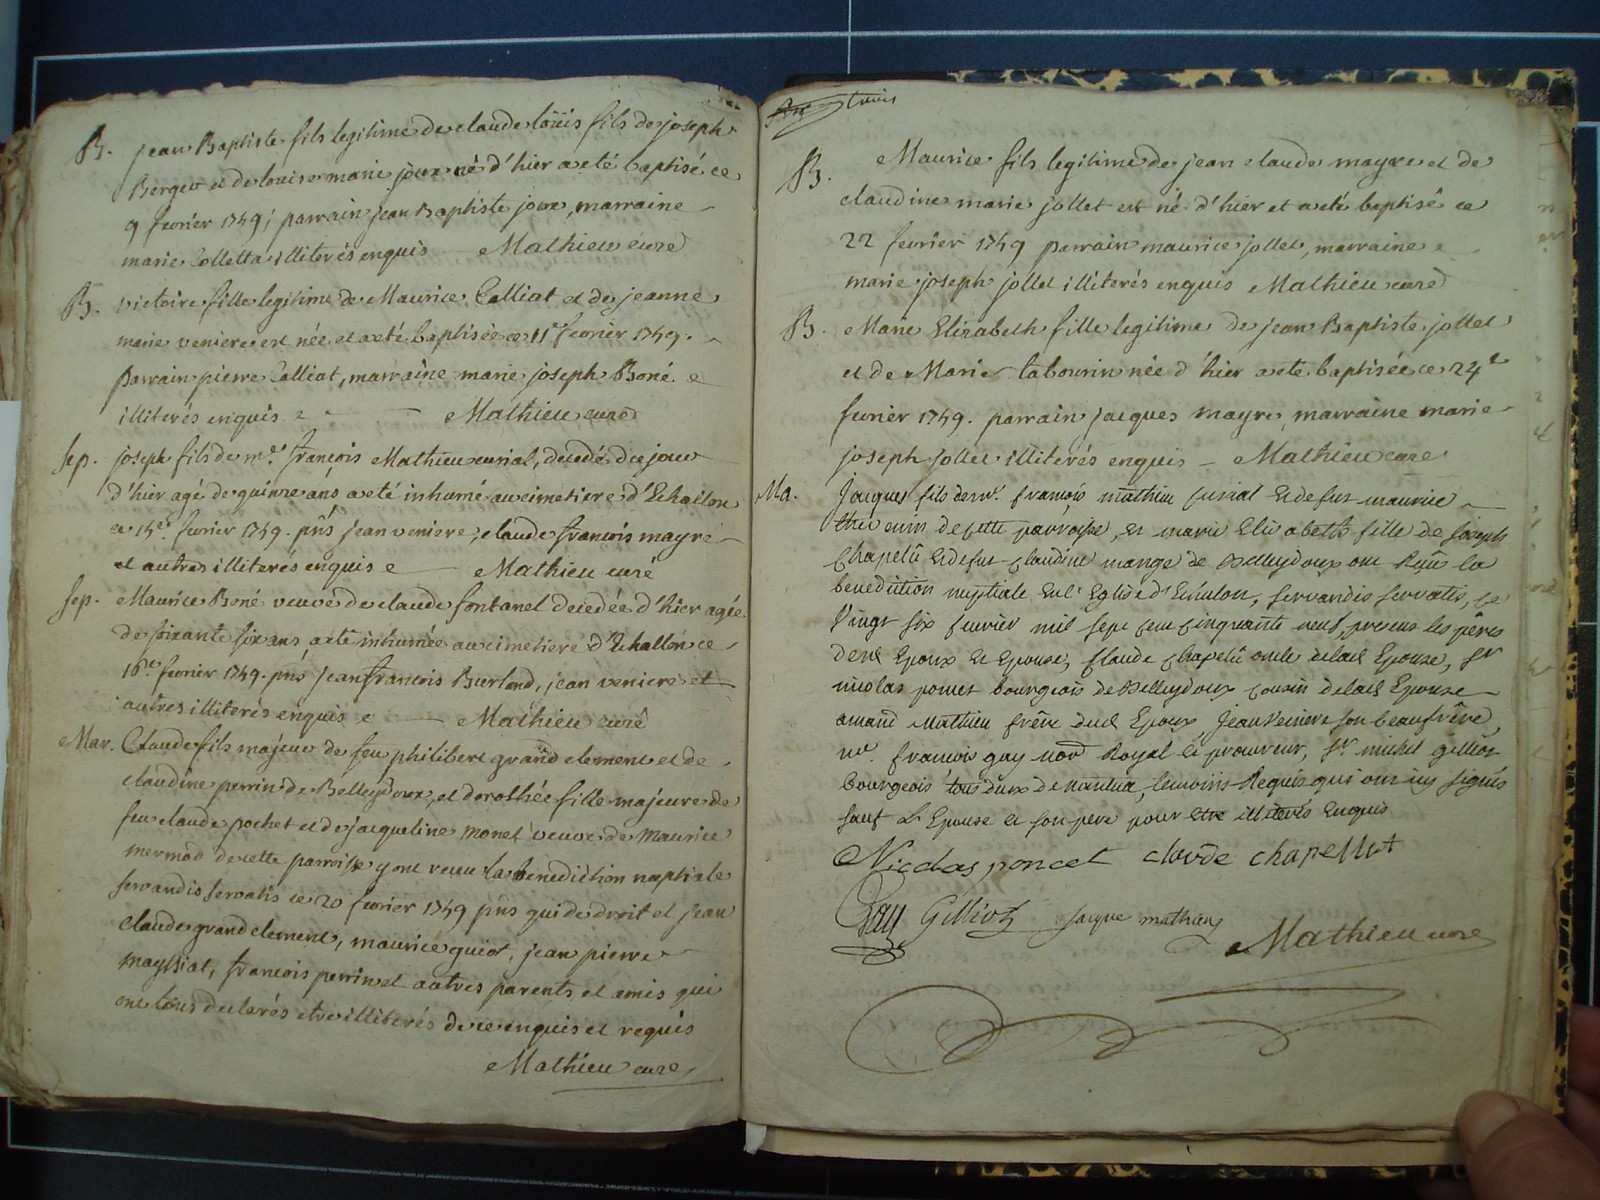 B. jean Baptiste fils legitime de claude loüis fils de joseph
Berger et de louise marie joux né d'hier a eté baptisé ce
9 fevrier 1759; parrain jean Baptiste joux, marraine
marie Colletta illiterés enquis Mathieu curé
B. victoire fille legitime de Maurice Calliat et de jeanne
marie veniere est née et a eté baptisée ce 11e fevrier 1759.
parrain pierre Calliat, marraine marie joseph Boné
illiterés enquis Mathieu curé
Sep. joseph fils de me. françois Mathieu curial, decedé du jour
d'hier agé de quinze ans a eté inhumé au cimetiere d'Echallon
ce 15e. fevrier 1759. pñs jean veniere, claude francois mayre
et autres illiterés enquis Mathieu curé
Sep. Maurice Boné veuve de claude fontanel decedée d'hier agée
de soixante six ans, a eté inhumée au cimetiere d'Echallon ce
16e. fevrier 1759. pñs jean francois Burlond, jean veniere et
autres illiterés enquis Mathieu curé
Mar. Claude fils majeur de feu philibert grand clement et de
claudine perrin de Belleydoux, et dorothée fille majeure de
feu claude pochet et de jacqueline monet veuve de Maurice
mermod de cette parroisse y ont receu la benediction nuptiale
servandis servatis ce 20 fevrier 1759 pñs qui de droit et jean
claude grand clement, maurice guiot, jean pierre
mayssiat, francois perrin et autres parents et amis qui
ont tous declarés etre illiterés de ce enquis et requis
Mathieu curé
trois
B. Maurice fils legitime de jean claude mayre et de
claudine marie jollet est né d'hier et a eté baptisé ce
22 fevrier 1759 parrain maurice jollet, marraine
marie joseph jollet illiterés enquis Mathieu curé
B. Marie Elizabeth fille legitime de jean Baptiste jollet
et de Marie tabourin née d'hier a eté baptisée ce 24e
fevrier 1759. parrain jacques mayre, marraine marie
joseph jollet illiterés enquis Mathieu curé
Ma. Jacques fils de me. françois mathieu curial et de fut maurice
de cette parroisse, et marie Elizabeth fille de Joseph
Chapelû et de fut Claudine mange de Belleydoux ont Reçû la
benediction nuptiale en l'Eglise d'Echalon, servandis servatis, ce
Vingt six fevrier mil sept cent cinquante neuf, presens les pêres
desd Epoux et Epouse, Claude Chapelû oncle de lad Epouse, Sr
nicolas poncet bourgeois de Belleydoux cousin de lad Epouse
amand Mathieu frêre dud Epoux, Jean Veniere son beaufrêre,
me. francois guy nore Royal et procureur, Sr michel gilliot
Bourgeois tous deux de nantua, temoins Requis qui ont icy signés
sauf L'Epouse et son pere pour etre illiterés Enquis
Nicolas poncet clavde chapellut
Gilliot Jacque mathieu
Mathieu curé